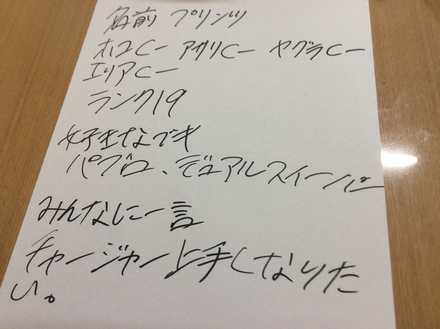 名前 プリンツ
ホコC- アサリC- ヤグラC-
エリアC-
ランク19
好きなブキ
パブロ、デュアルスイーパー
みんなに一言
チャージャー上手くなりた
い。